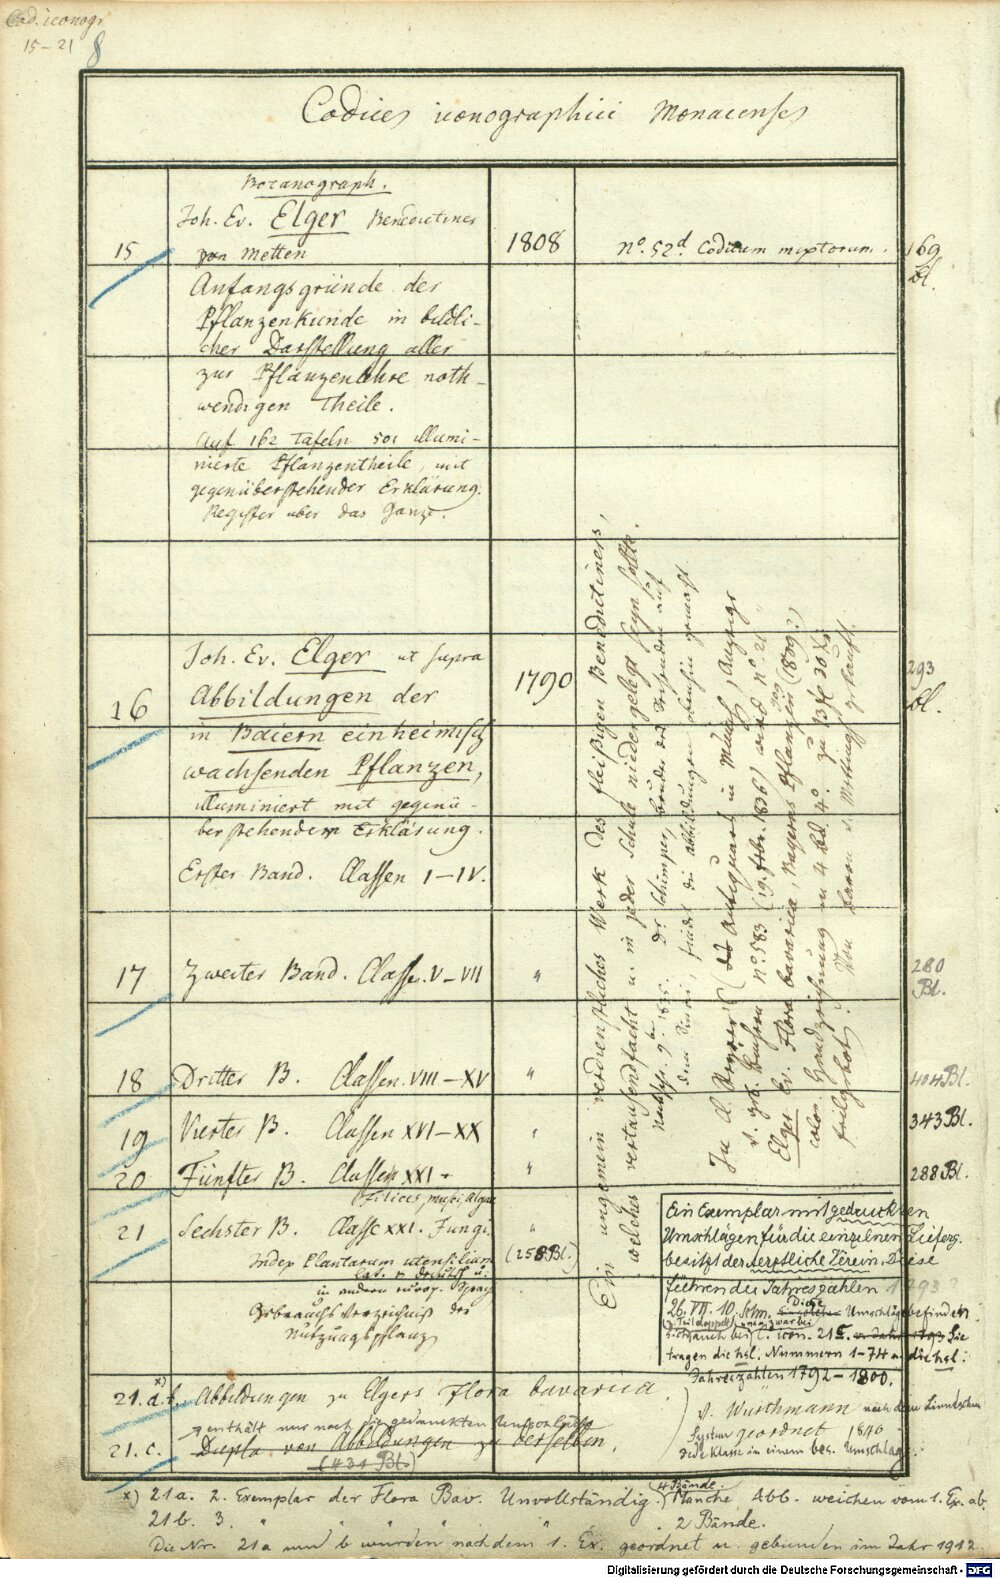 Cod. iconogr
15-21
8
Codices iconographici Monacenses
Botanograph.
Joh. Ev. Elger Benedictiner
15
von Metten
1808
No. 52d. Codicum mixtorum.
169
Bl.
Anfangsgründe der
Pflanzenkunde in bildli-
cher Darstellung aller
zur Pflanzenlehre noth-
wendigen Theile.
Auf 162 Tafeln 501 illumi-
nierte Pflanzentheile, mit
gegenüberstehender Erklärung.
Register über das Ganze.
Joh. Ev. Elger ut supra
16
1790
293
Bl.
Abbildungen der
in Baiern einheimisch
wachsenden Pflanzen,
illuminiert mit gegenü-
berstehendem Erklärung.
Erster Band. Classen I-IV.
17
Zweiter Band. Classe. V-VII
"
280
Bl.
18
Dritter B. Classen. VIII-XV
"
404 Bl.
19
Vierter B. Classen XVI-XX
"
343 Bl.
20
Fünfter B. Classen XXI-
"
288 Bl.
Filices, musci, Algae
21
Sechster B. Classe XXI. Fungi.
"
(258 Bl.)
Index Plantarum utensilium
lat. u. deutsch u.
in andern europ. Sprach
Gebrauchs Verzeichniß der
Nutzungspflanz
Ein ungemein verdienstliches Werk des fleißigen Benedictiners,
welches vertausendfacht u. in jeder Schule niedergelegt seyn sollte.
Dr Schimper, Bruder des Reisenden auf
dem Sinai, findet die Abbildungen
Antiquars in München, Anzeige
v. geb. Büchern No. 583 (19. Febr. 1836) wird No. 21
Elger Ev. Flora bavarica, Bayerns Pflanzen
color. Handzeichnung in 4 Bd. 4o. zu 13 fl 30 Xr.
feilgebot. Von Baron v. gekauft.
Ein Exemplar mit gedruckten
Umschlägen für die einzelnen Lieferg.
besitzt der Aerztliche Verein. Diese
führen die Jahreszahlen 1793?
26. VII. 10. Schm. Diese Umschläge befinden
sich auch bei C. icon. 21 c. Sie
tragen die hsl. Nummern 1-74 u. die hsl.
Jahreszahlen 1792-1800.
x)
21. a. b. Abbildungen zu Elgers Flora bavarica
enthält nur noch die gedruckten Umschläge
21. c. Dupla von Abbildungen zu derselben.
(431 Bl.)
v. Wüsthmann nach dem Linnéschen
System geordnet 1840
Jede Klasse in einem bes. Umschlag.
x) 21a. 2. Exemplar der Flora Bav. Unvollständig. 4 Bände. Manche Abb. weichen vom 1. Ex. ab.
21b. 3. " " " " 2 Bände.
Die Nr. 21a und b wurden nach dem 1. Ex. geordnet u. gebunden im Jahr 1912.
Digitalisierung gefördert durch die Deutsche Forschungsgemeinschaft - DFG